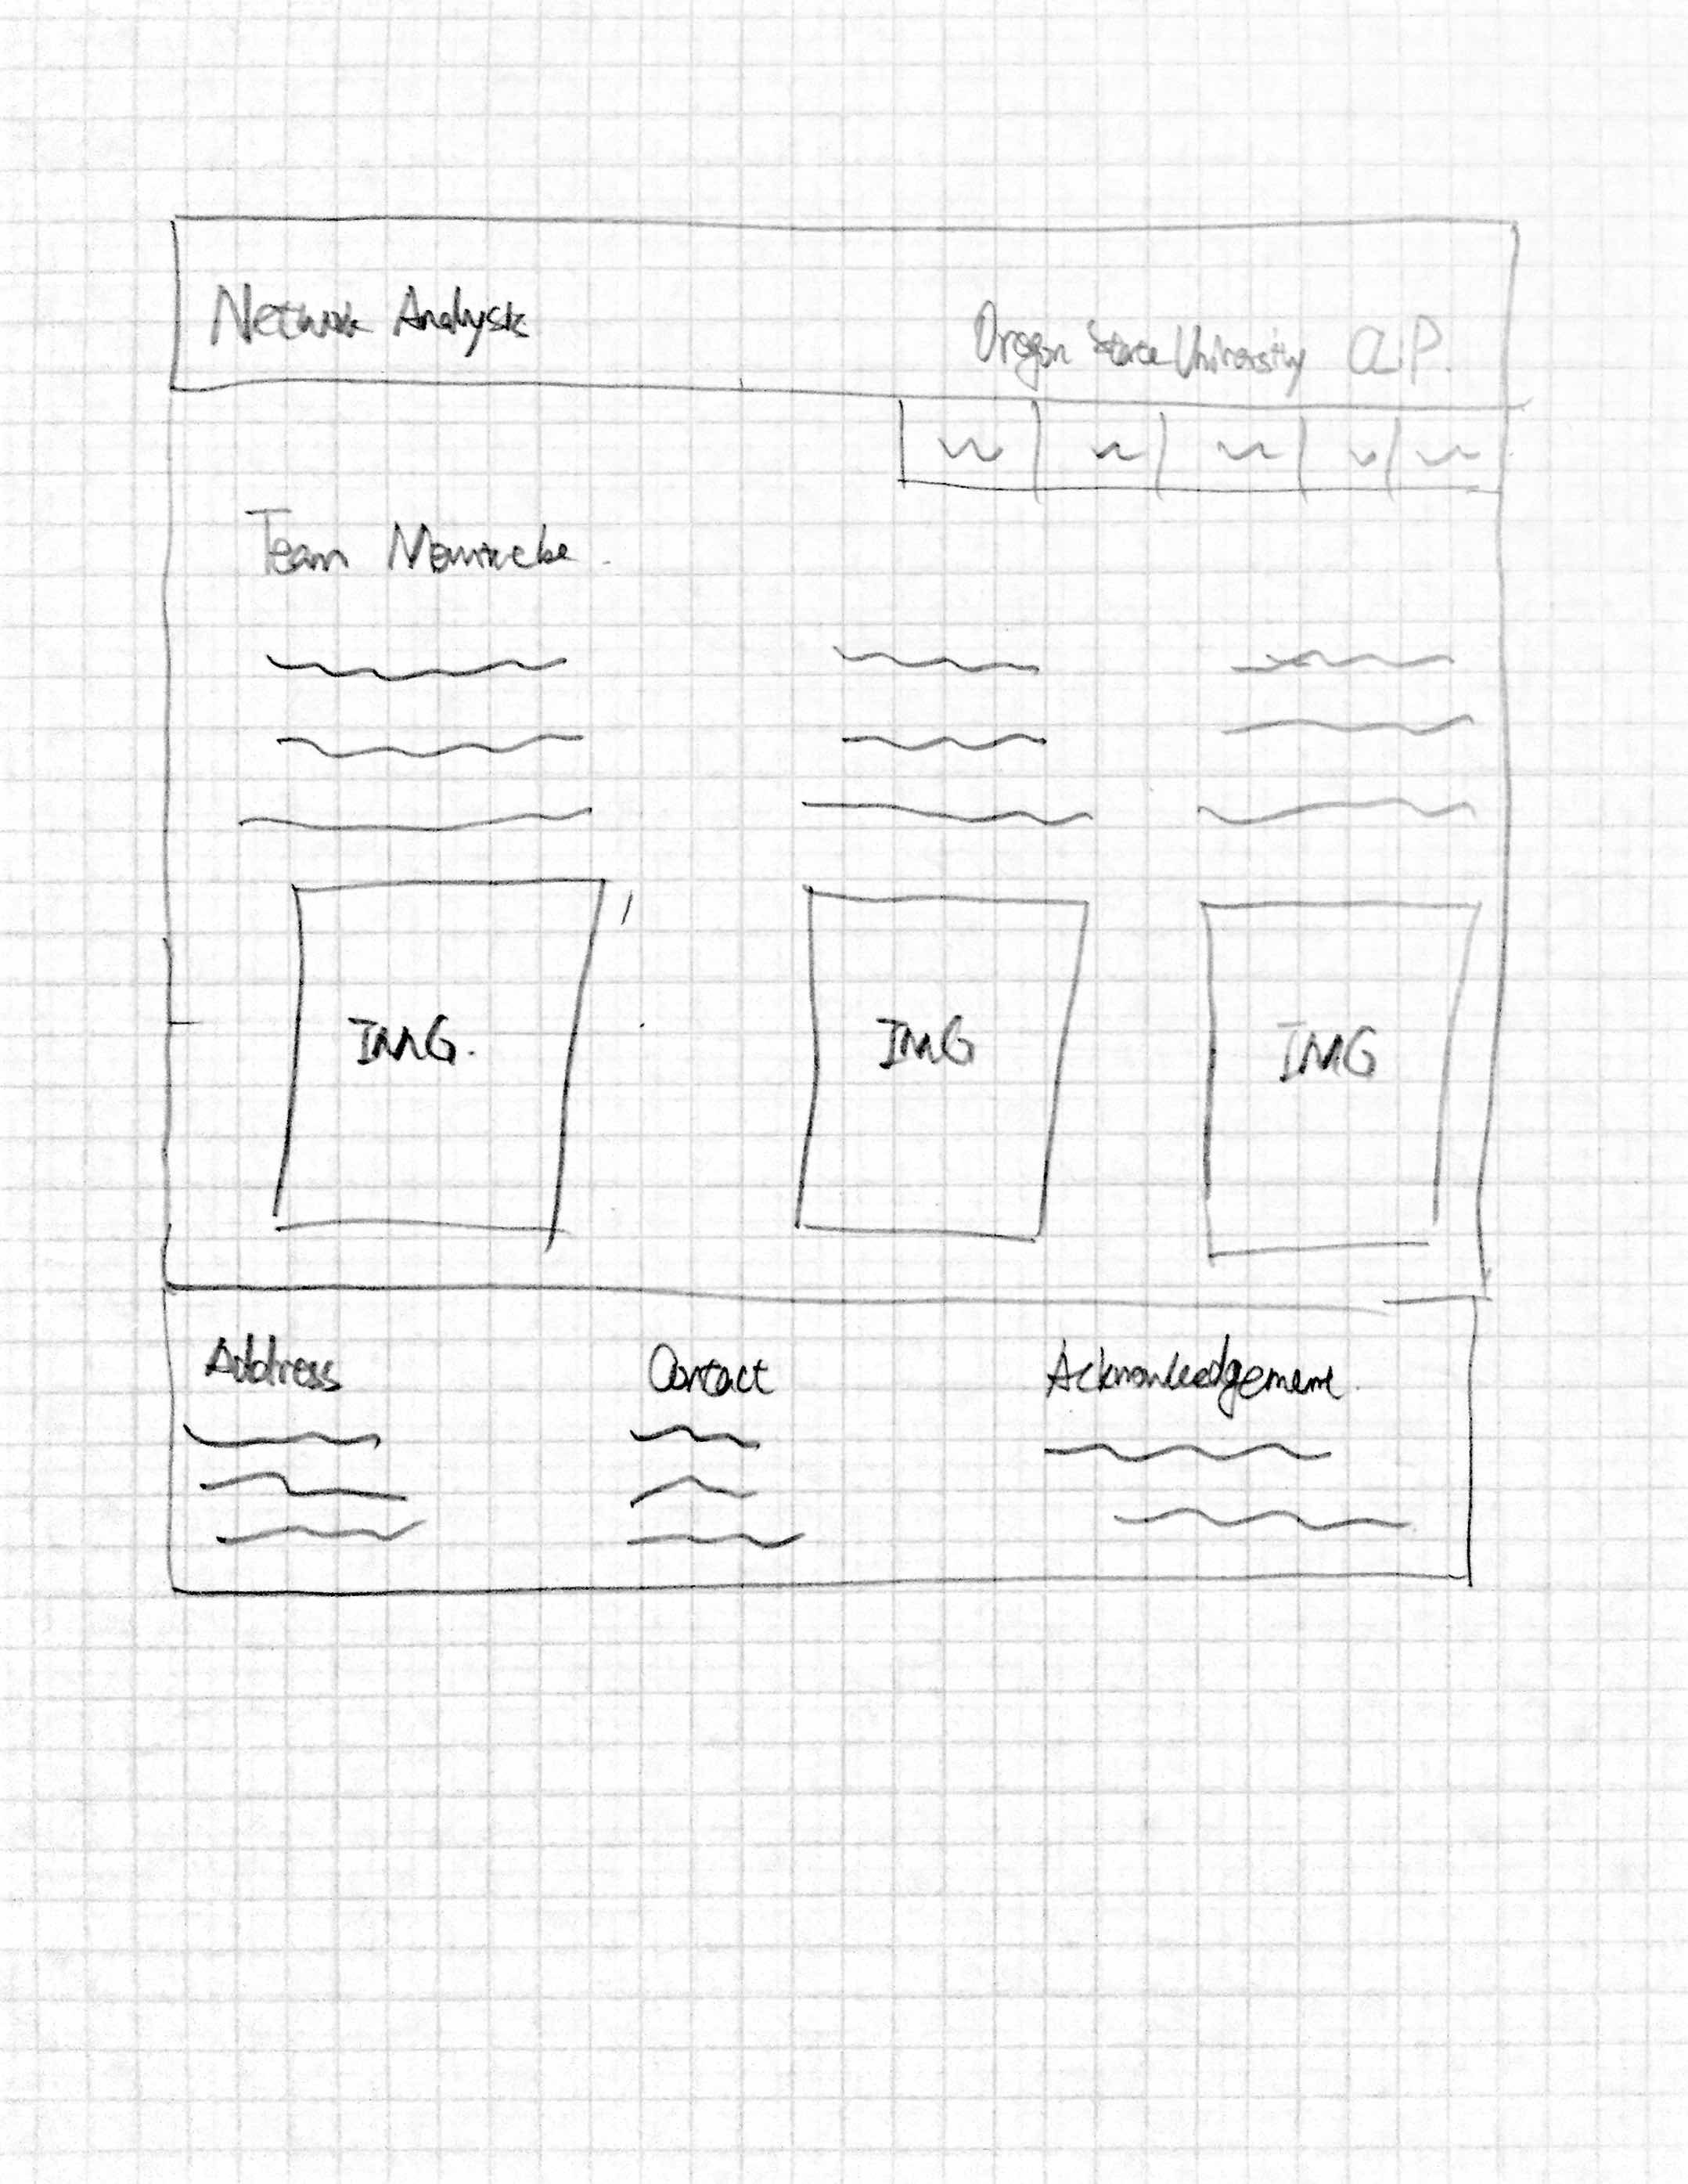 Network Analysis
Oregon State University
Team
IMG.
IMG
IMG
Address
Contact
Acknowledgement.